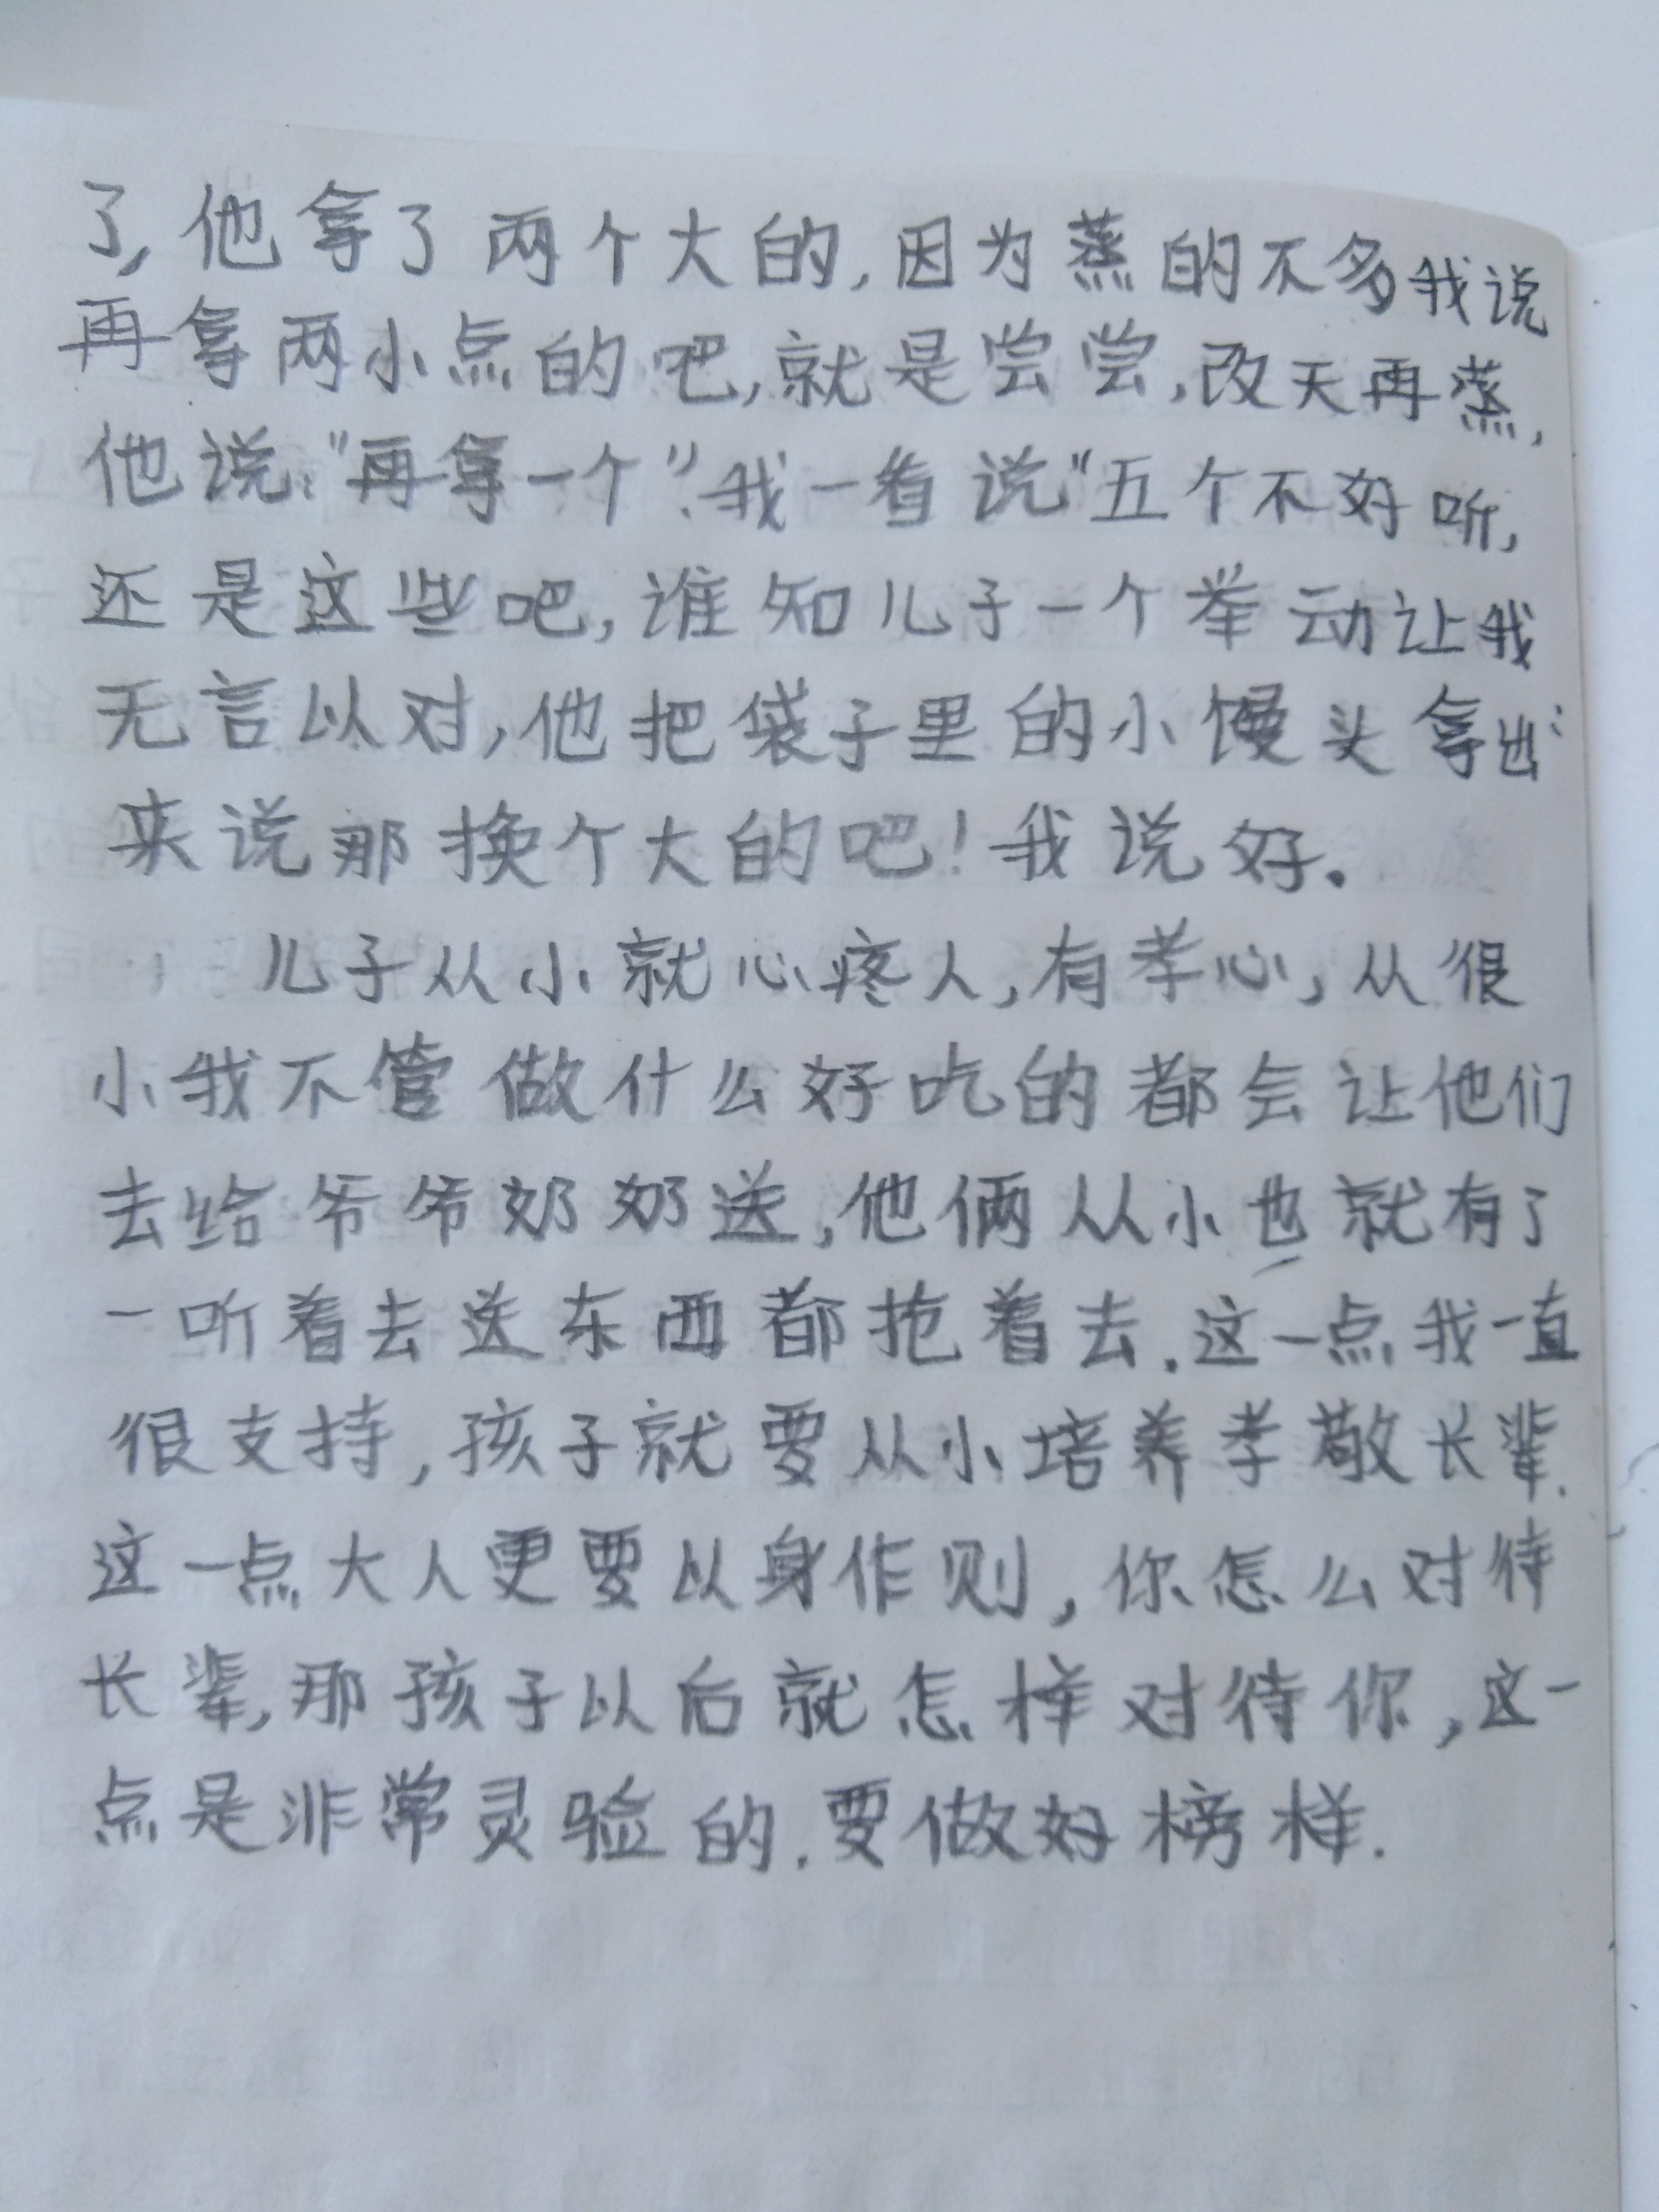 了,他拿了两个大的,因为蒸的不多我说
再拿两小点的吧,就是尝尝,改天再蒸,
他说:"再拿一个".我一看说"五个不好听,
还是这些吧,谁知儿子一个举动让我
无言以对,他把袋子里的小馒头拿出
来说那换个大的吧!我说好。
儿子从小就心疼人,有孝心,从很
小我不管做什么好吃的都会让他们
去给爷爷奶奶送,他俩从小也就有了
一听着去送东西都抢着去.这一点我一直
很支持,孩子就要从小培养孝敬长辈.
这一点大人更要以身作则,你怎么对待
长辈,那孩子以后就怎样对待你,这一
点是非常灵验的.要做好榜样.